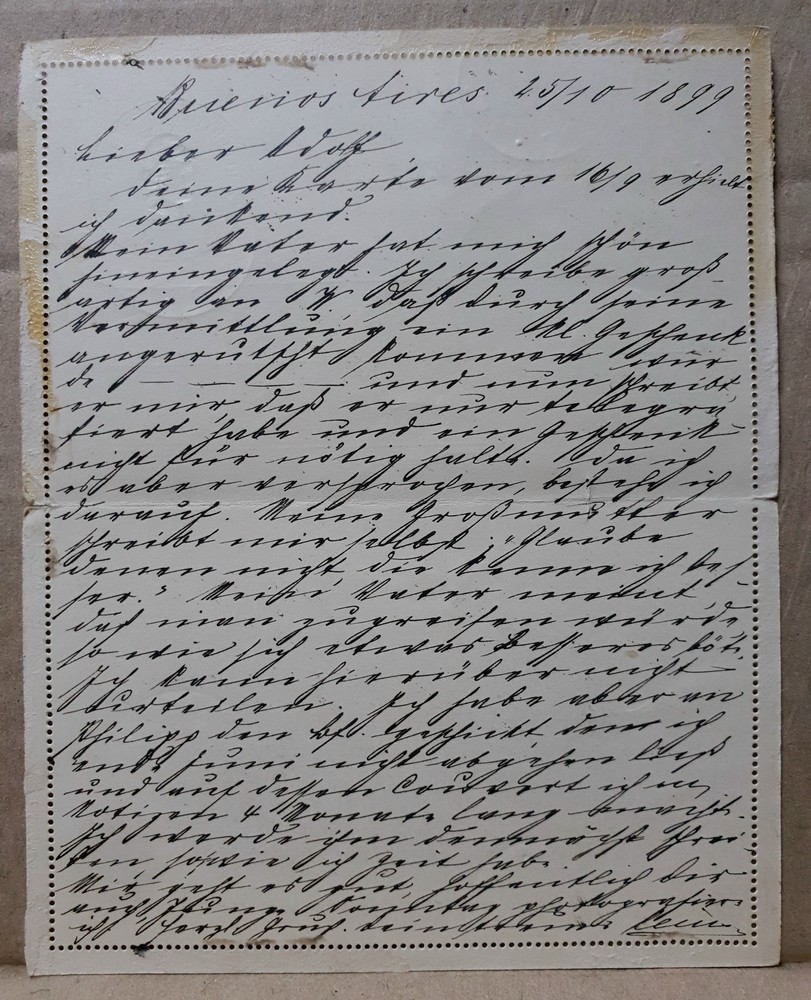 Buenos Aires 25/10 1899
Lieber Adolf,
Deine Karte vom 16/9 erhielt
ich dankend.
Mein Vater hat mich schön
hineingelegt. Ich schreibe groß-
artig an daß durch seine
Vermittlung ein kl. Geschenk
angerutscht kommen wür
de — — — — und nun schreibt
er mir, daß er nur telegra-
fiert habe und ein Geschenk
nicht für nötig halte. Da ich
es aber versprochen, bestehe ich
darauf. Meine Großmutter
schreibt mir selbst: "Glaube
denen nicht die kenne ich bes-
ser." Mein Vater meint
daß man zugreifen würde
so wie sich etwas Besseres böte.
Ich kann hierüber nicht
urteilen. Ich habe aber an
Philipp den Bf. geschickt, den ich
ende Juni nicht abgehen ließ
und auf dessen Couvert ich
Notizen 4 Monate lang
Ich werde ihm demnächst schrei-
ben sowie ich Zeit habe.
Mir geht es gut, hoffentlich Dir
auch. Sonntag photografier
ich. Herzl. Gruß. Dein treuer